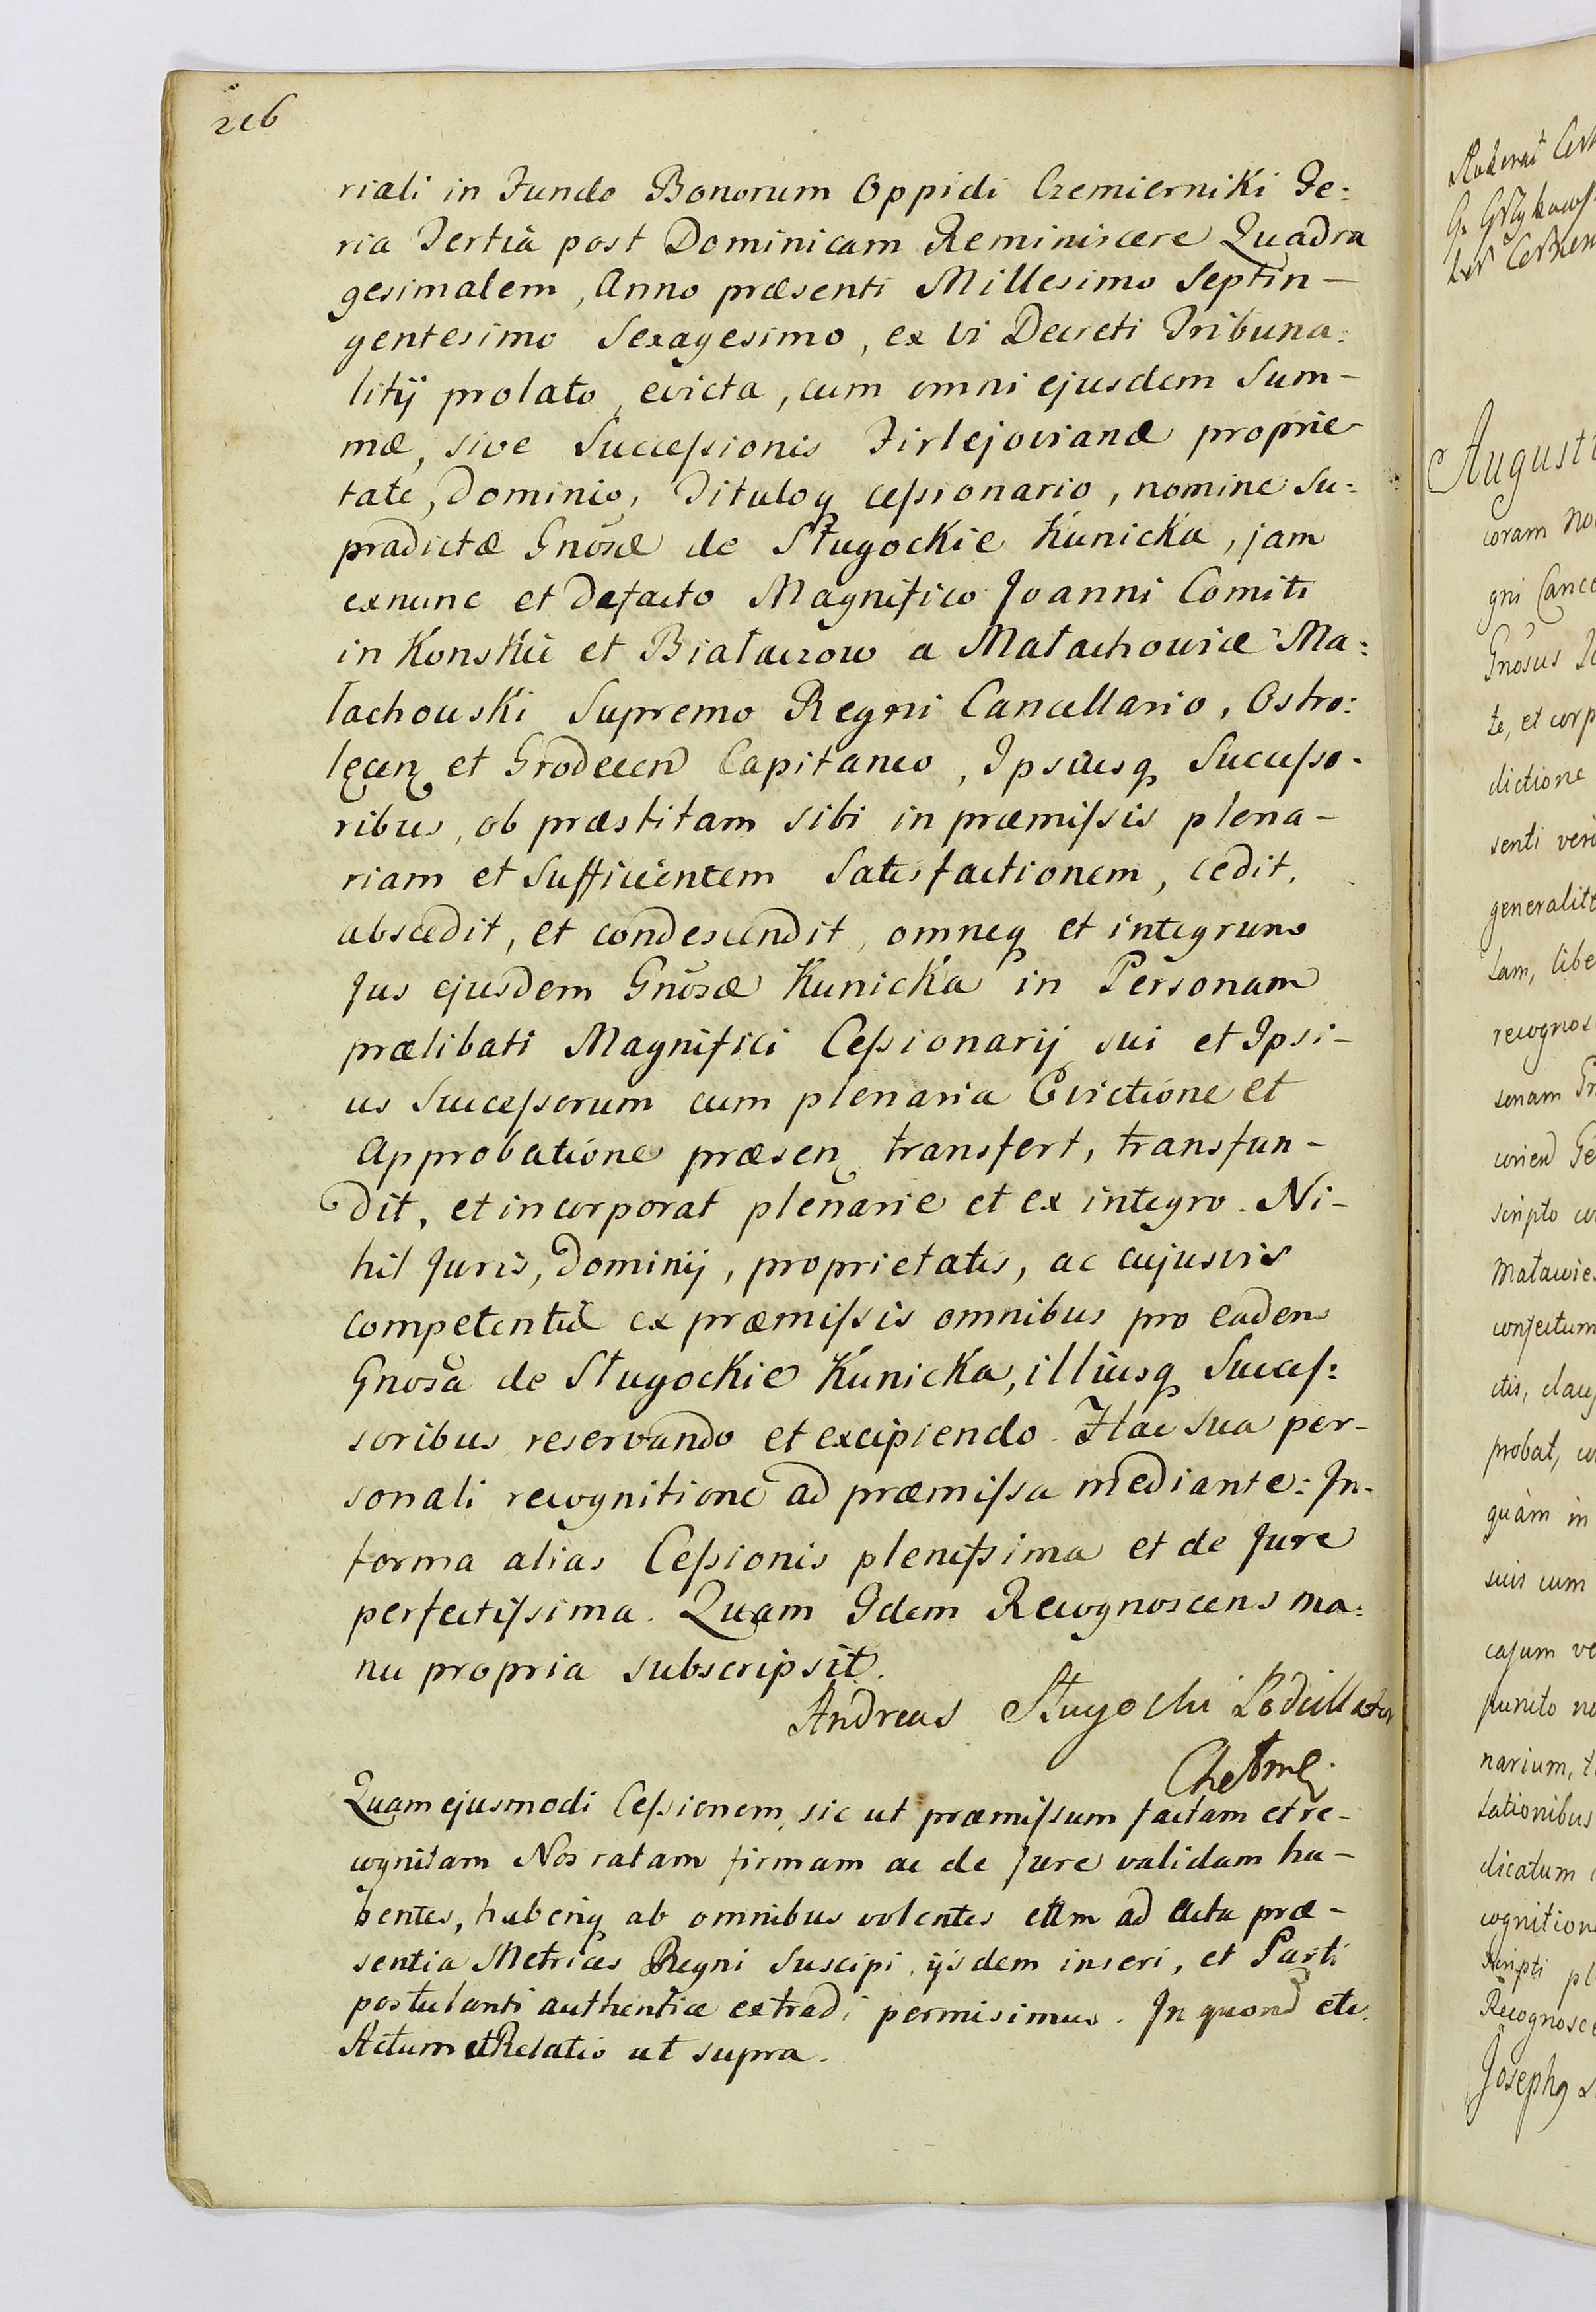 216
riali in Fundo Bonorum Oppidi Czemierniki Fe:
ria Tertia post Dominicam Reminiscere Quadra
gesimalem, Anno præsenti Millesimo Septin-
gentesimo Sexagesimo, ex vi Decreti Tribuna:
litÿ prolato, evicta, cum omni ejusdem Sum-
mæ, sive Successionis Firlejovianæ proprie-
tate, Dominio, Tituloq cessionario, nomine Su:
pradictæ Gnosæ de Sługockie Kunicka, jam
exnunc et defacto Magnifico Joanni Comiti
in Konskie et Białaczow a Małachowice Ma:
łachowski Supremo Regni Cancellario, Ostro:
łęcen et Grodecen Capitaneo, Ipsiusq Successo-
ribus, ob præstitam sibi in præmissis plena-
riam et Sufficientem Satisfactionem, cedit,
abscedit, et condescendit, omneq et integrum
Jus ejusdem Gnosæ Kunicka in Personam
prælibati Magnifici Cessionarij sui et Ipsi-
us Successorum cum plenaria Evictione et
Approbatione præsen transfert, transfun-
dit, et incorporat plenarie et ex integro. Ni-
hil Juris, Dominij, proprietatis, ac cujusvis
competentiæ ex præmissis omnibus pro eadem
Gnosa de Sługockie Kunicka, illiusq Succes:
soribus reservando et excipiendo. Hac sua per-
sonali recognitione ad præmissa mediante: In-
forma alias Cessionis plenissima et de Jure
perfectissima. Quam Idem Recognoscens ma:
nu propria subscripsit.
Andreas Sługocki
Quam ejusmodi Cessionem, sic ut præmissum factam et re-
cognitam Nos ratam firmam ac de Jure validam ha-
bentes, haberiq ab omnibus volentes eam ad Acta præ-
sentia Metrices Regni Suscipi, ijsdem inseri, et Parti
postulanti authentice extradi permisimus. In quord etc.
Actum et Relatio ut supra.
August
coram
Gnosus
te, et corp
dictione
senti
generalit
tam, libe
recognos
scripto
probat,
quàm in
suis cum
narium,
tationibus
dicatum
cognition
Josephq